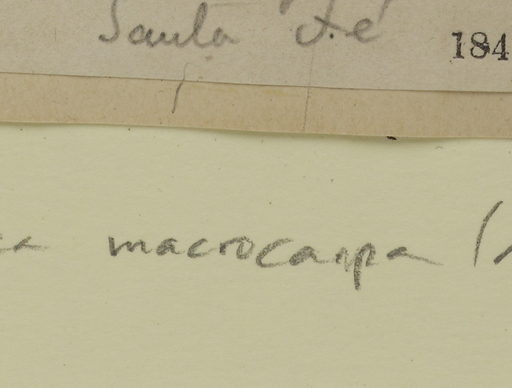 Santa Fé 184
macrocarpa (